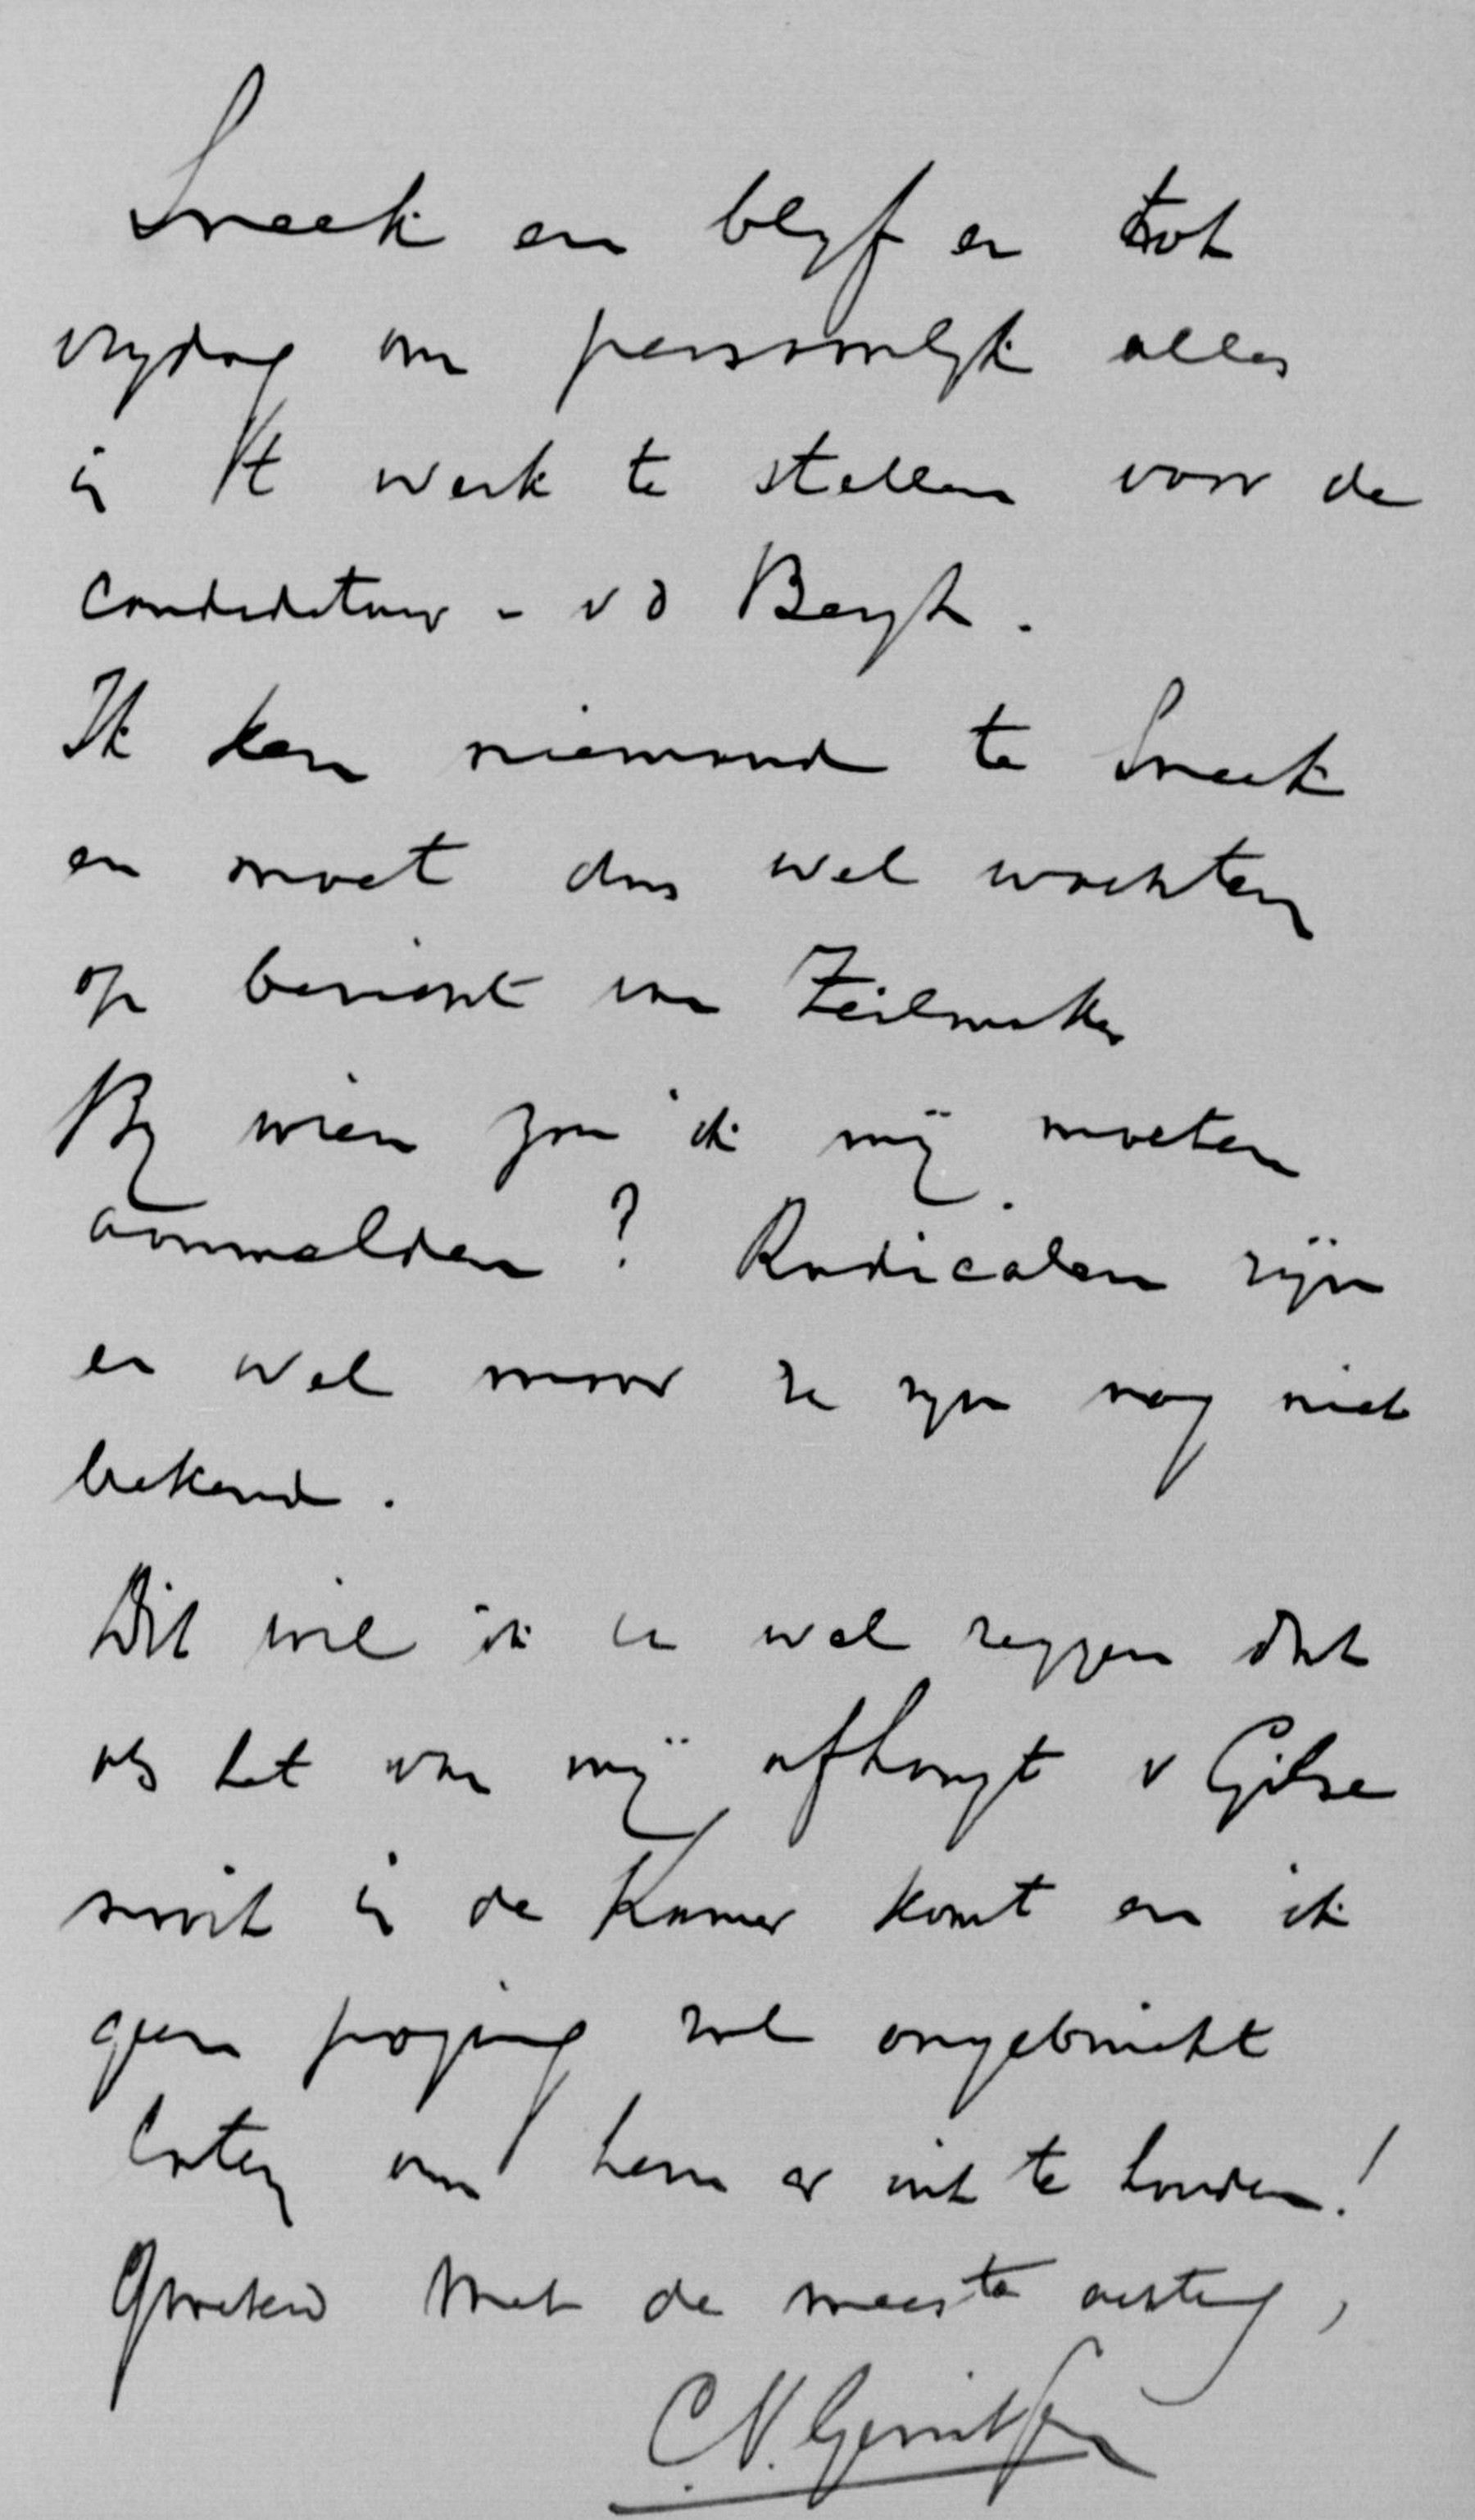 Sneek en blyf er tot
vrydag om persoonlyk alles
in 't werk te stellen voor de
candidatuur - v d Bergh.
Ik ken niemand te Sneek
en moet dus wel wachten
op bericht van Zeilmaker
By wien zou ik mij moeten
aanmelden? Radicalen zijn
er wel maar ze zyn nog niet
bekend.
Dit wil ik u wel zeggen dat
als het van mij afhangt v Gilse
nooit in de Kamer komt en ik
geen poging zal ongebruikt
laten om hem er uit te houden!
Groetend Met de meeste achting,
C.V. Gerritsen